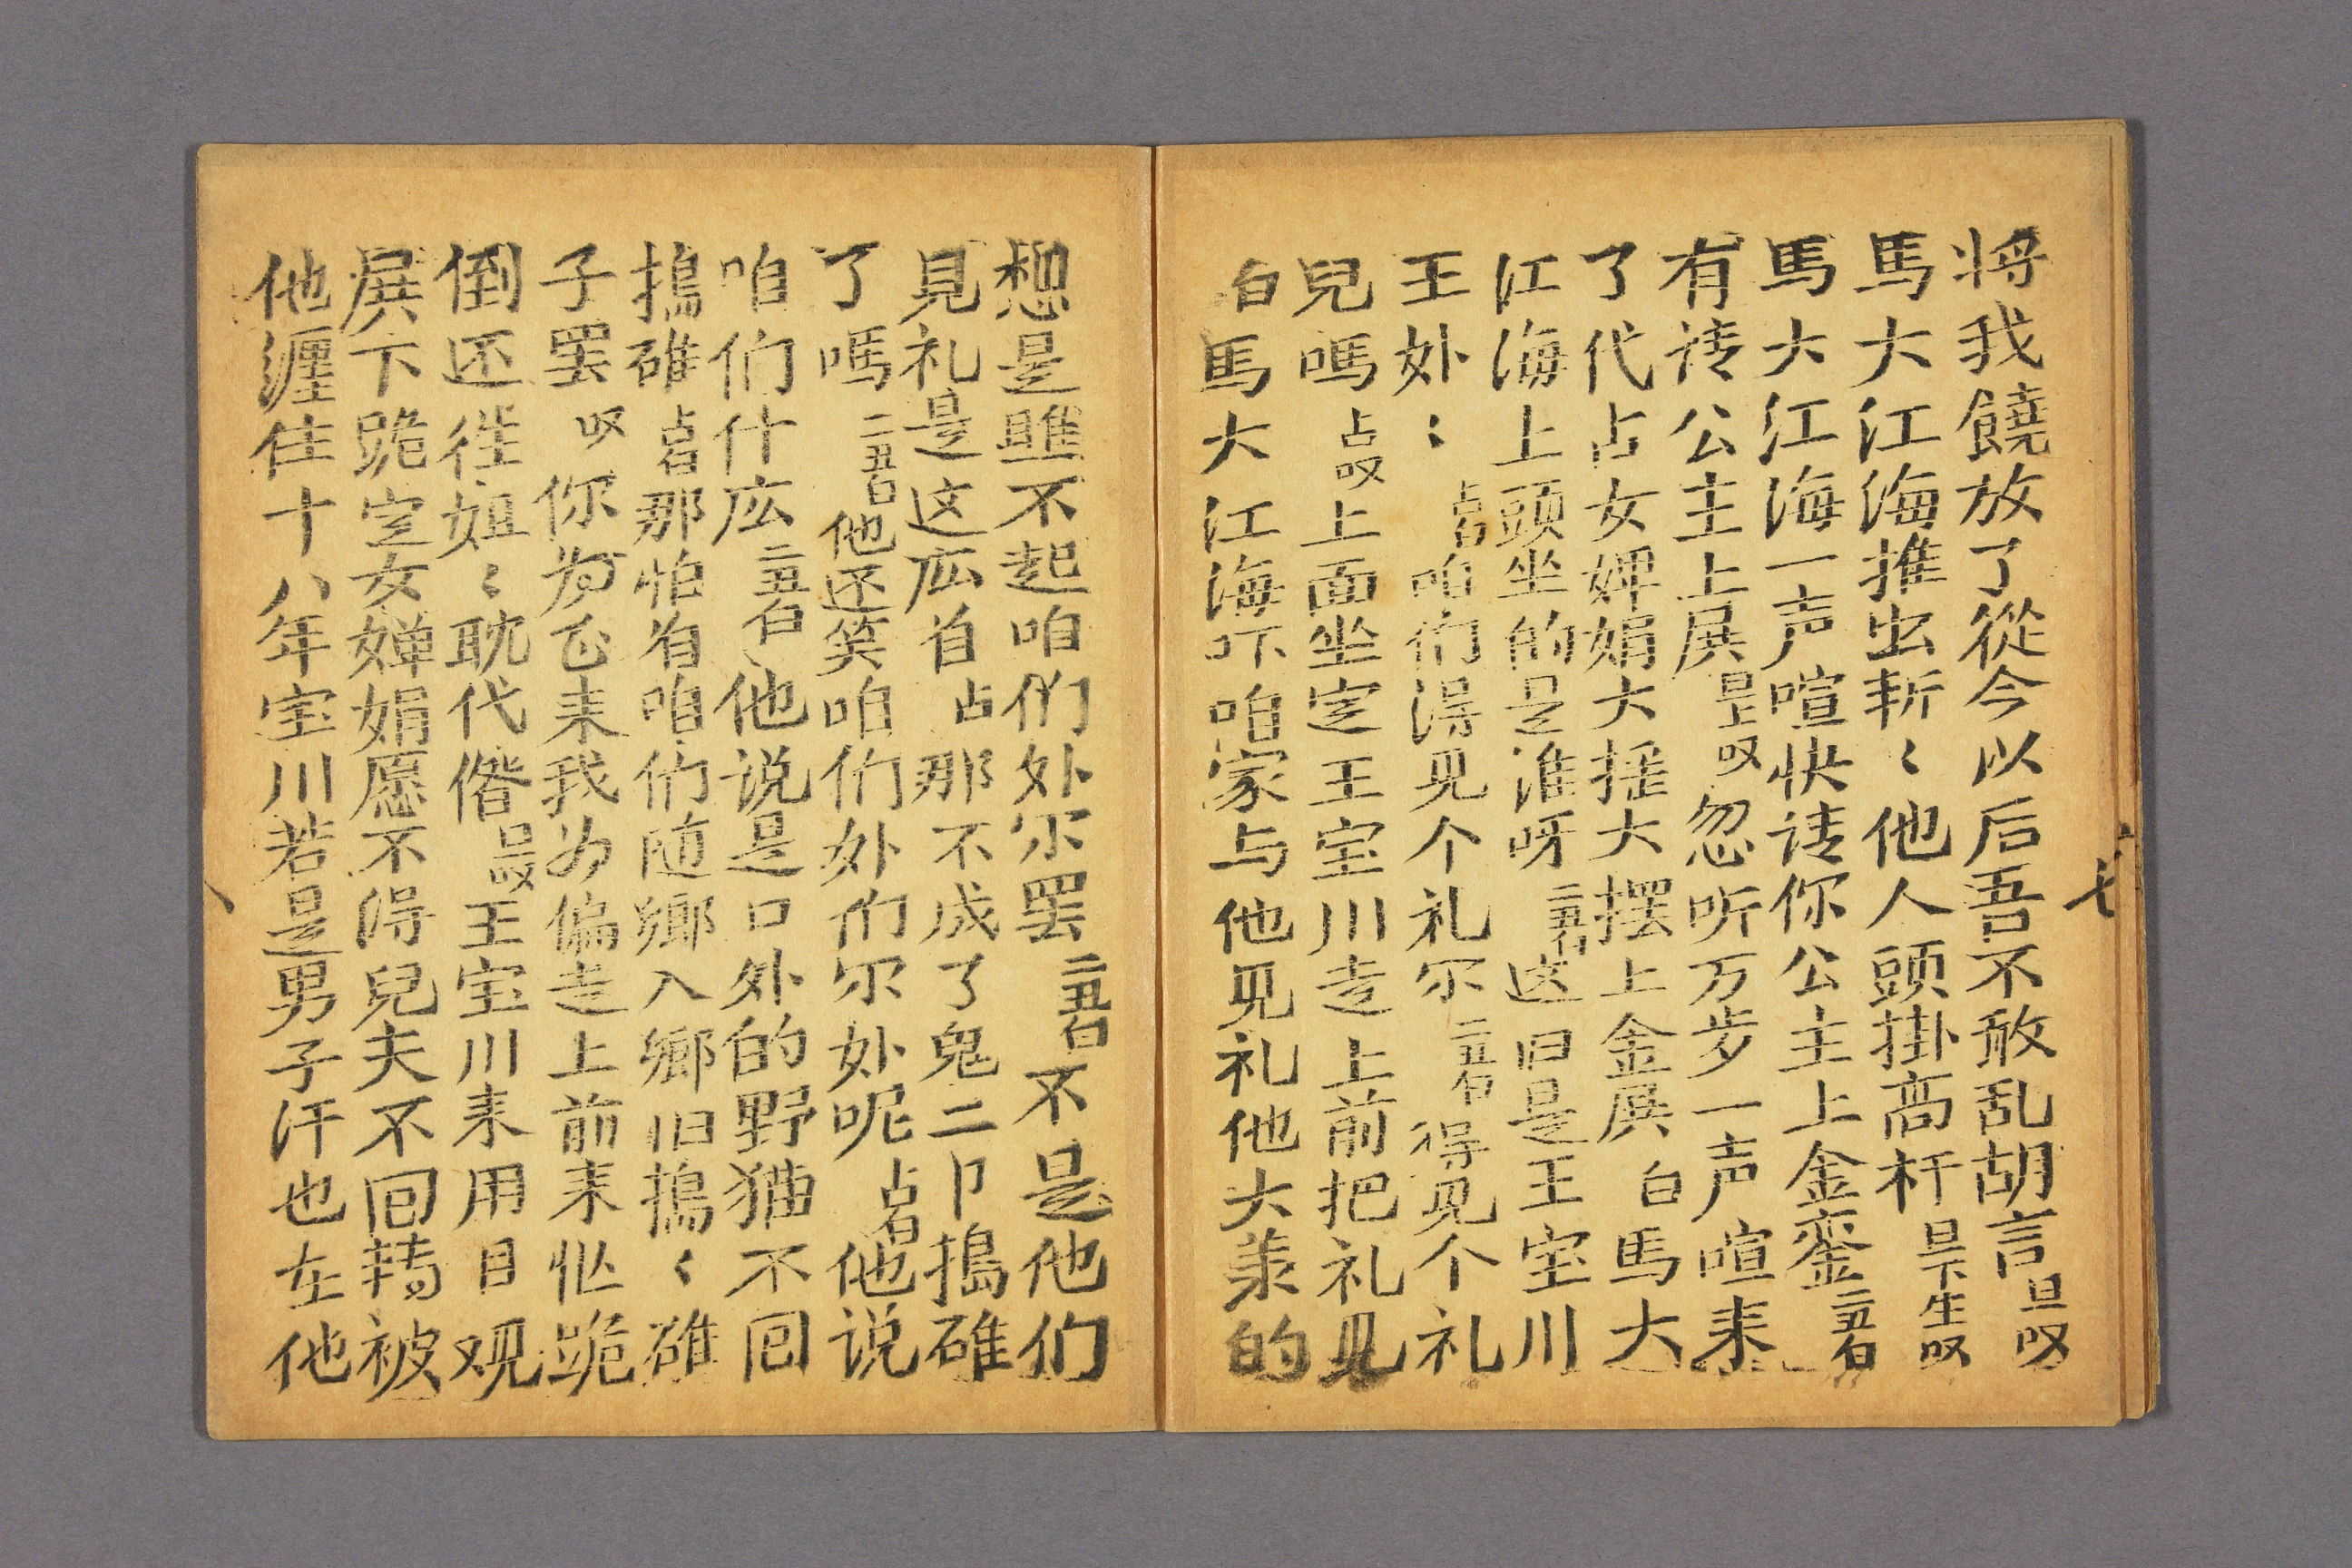 将我饒放了從今以后吾不敢乱胡言旦叹
馬大江海推出斬〻他人頭掛高杆旦下生叹
馬大江海一声喧快请你公主上金銮二丑白
有请公主上展旦上叹忽听万步一声喧来
了代占女婢娟大摇大摆上金展白馬大
江海上頭坐的是谁呀二丑白这曰是王宝川
王处：占白咱们得见个礼尔二丑白得见个礼
兒嗎占叹上面坐定王宝川走上前把礼见
白馬大江海吓咱家与他见礼他大羕的
想是雎不起咱们处尔罢二丑白不是他们
見礼是这庅自占那不成了鬼二卩搗碓
了嗎二丑白他还笑咱们处们尔处呢占白他说
咱们什庅二丑白他说是口外的野猫不回
搗碓占白那怕有咱们随鄉入鄉旧搗〻碓
子罢叹你为正来我为偏走上前来忙跪
倒还徃姐〻耽代僭旦叹王宝川来用目观
展下跪定女婵娟愿不得兒夫不回转被
他缠住十八年宝川若是男子汗也在他
七